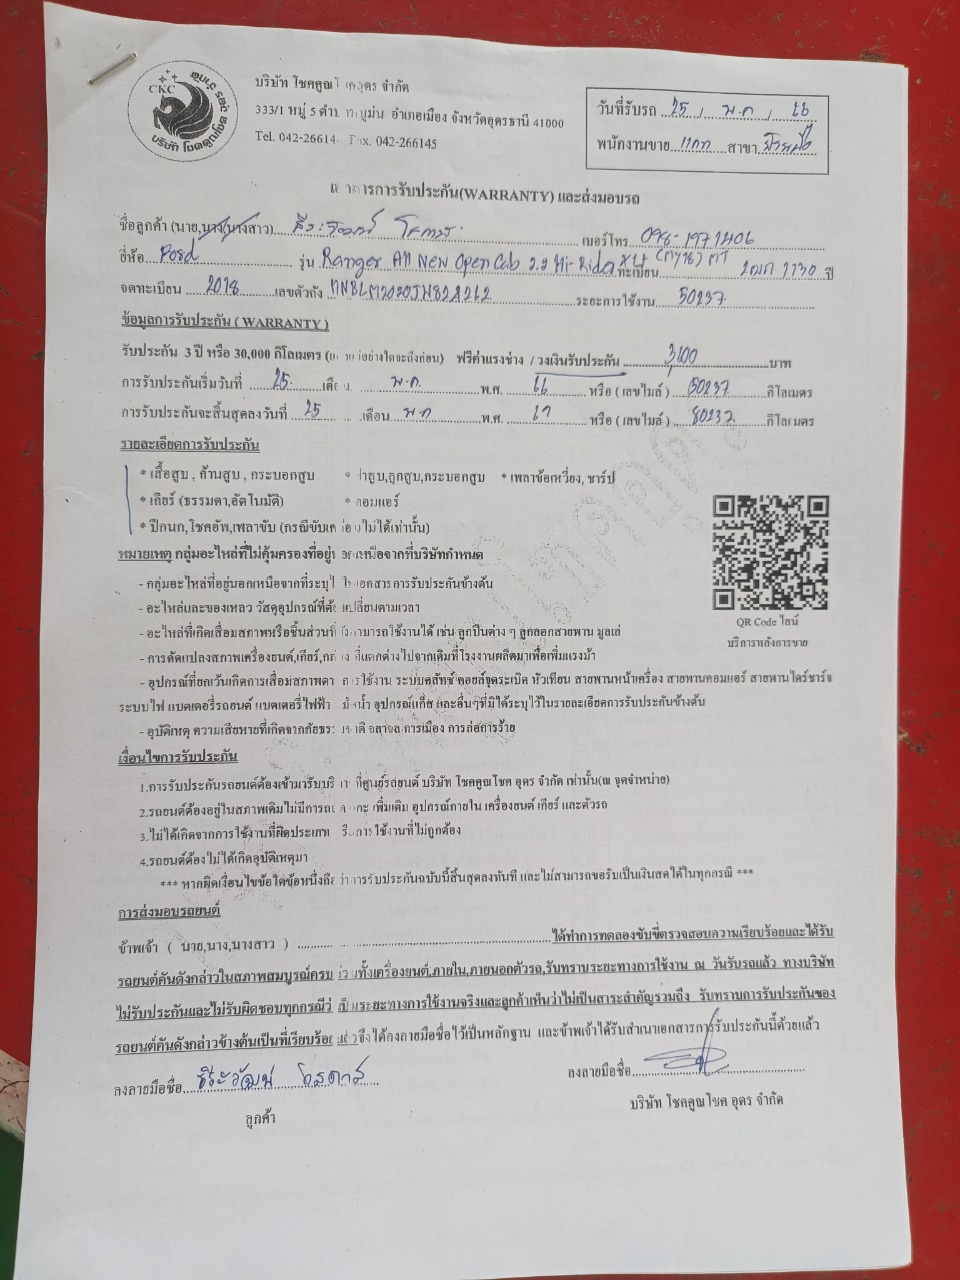 CKC
บริษัท โชคคูณโชค อุดร จำกัด
บริษัท โชคคูณโชค อุดร จำกัด
333/1 หมู่ 5 ตำบ อำเภอเมือง จังหวัดอุดรธานี 41000
Tel. 042-26614 Fax. 042-266145
วันที่รับรถ 25 / พ.ค / 66
พนักงานขาย สาขา
การรับประกัน(WARRANTY) และส่งมอบรถ
ชื่อลูกค้า (นาย,นาง,นางสาว) เบอร์โทร 098-1971406
ยี่ห้อ Ford รุ่น Ranger All New Open Cab 2.2 Hi-Rider XLT (MY18) MT ทะเบียน 2ฒภ 1130 ปี
จดทะเบียน 2018 เลขตัวถัง ระยะการใช้งาน 50237
ข้อมูลการรับประกัน ( WARRANTY )
รับประกัน 3 ปี หรือ 30,000 กิโลเมตร (แล้วแต่อย่างใดจะถึงก่อน) ฟรีค่าแรงช่าง / วงเงินรับประกัน 3,100 บาท
การรับประกันเริ่มวันที่ 25 เดือน พ.ค. พ.ศ. 66 หรือ ( เลขไมล์ ) 50237 กิโลเมตร
การรับประกันจะสิ้นสุดลงวันที่ 25 เดือน พ.ค พ.ศ. 69 หรือ ( เลขไมล์ ) 80237 กิโลเมตร
รายละเอียดการรับประกัน
* เสื้อสูบ , ก้านสูบ , กระบอกสูบ * ฝาสูบ,ลูกสูบ,กระบอกสูบ * เพลาข้อเหวี่ยง, ชาร์ป
* เกียร์ (ธรรมดา,อัตโนมัติ) * คอมแอร์
* ปีกนก,โชคอัพ,เพลาขับ (กรณีขับเคลื่อนไม่ได้เท่านั้น)
หมายเหตุ กลุ่มอะไหล่ที่ไม่คุ้มครองที่อยู่นอกเหนือจากที่บริษัทกำหนด
- กลุ่มอะไหล่ที่อยู่นอกเหนือจากที่ระบุไว้ในเอกสารการรับประกันข้างต้น
- อะไหล่และของเหลว วัสดุอุปกรณ์ที่ต้องเปลี่ยนตามเวลา
- อะไหล่ที่เกิดเสื่อมสภาพหรือชิ้นส่วนที่ยังสามารถใช้งานได้ เช่น ลูกปืนต่าง ๆ ลูกลอกสายพาน มูเล่
- การดัดแปลงสภาพเครื่องยนต์,เกียร์,กล่อง ที่แตกต่างไปจากเดิมที่โรงงานผลิตมาเพื่อเพิ่มแรงม้า
- อุปกรณ์ที่ยกเว้นเกิดการเสื่อมสภาพตามการใช้งาน ระบบคลัทช์ คอยล์จุดระเบิด หัวเทียน สายพานหน้าเครื่อง สายพานคอมแอร์ สายพานไดร์ชาร์จ
ระบบไฟ แบตเตอรี่รถยนต์ แบตเตอรี่ไฟฟ้า หม้อน้ำ อุปกรณ์แก๊ส และอื่นๆที่มิได้ระบุไว้ในรายละเอียดการรับประกันข้างต้น
- อุบัติเหตุ ความเสียหายที่เกิดจากภัยธรรมชาติ จลาจล การเมือง การก่อการร้าย
QR Code ไลน์
บริการหลังการขาย
เงื่อนไขการรับประกัน
1.การรับประกันรถยนต์ต้องเข้ามารับบริการที่ศูนย์รถยนต์ บริษัท โชคคูณโชค อุดร จำกัด เท่านั้น(ณ จุดจำหน่าย)
2.รถยนต์ต้องอยู่ในสภาพเดิมไม่มีการถอด แกะ เพิ่มเติม อุปกรณ์ภายใน เครื่องยนต์ เกียร์ และตัวรถ
3.ไม่ได้เกิดจากการใช้งานที่ผิดประเภท หรือการใช้งานที่ไม่ถูกต้อง
4.รถยนต์ต้องไม่ได้เกิดอุบัติเหตุมา
*** หากผิดเงื่อนไขข้อใดข้อหนึ่งถือว่าการรับประกันฉบับนี้สิ้นสุดลงทันที และไม่สามารถขอรับเป็นเงินสดได้ในทุกกรณี ***
การส่งมอบรถยนต์
ข้าพเจ้า ( นาย,นาง,นางสาว ) ได้ทำการทดลองขับขี่ตรวจสอบความเรียบร้อยและได้รับ
รถยนต์คันดังกล่าวในสภาพสมบูรณ์ครบถ้วนทั้งเครื่องยนต์,ภายใน,ภายนอกตัวรถ,รับทราบระยะทางการใช้งาน ณ วันรับรถแล้ว ทางบริษัท
ไม่รับประกันและไม่รับผิดชอบทุกกรณีว่าเป็นระยะทางการใช้งานจริงและลูกค้าเห็นว่าไม่เป็นสาระสำคัญรวมถึง รับทราบการรับประกันของ
รถยนต์คันดังกล่าวข้างต้นเป็นที่เรียบร้อยแล้วจึงได้ลงลายมือชื่อไว้เป็นหลักฐาน และข้าพเจ้าได้รับสำเนาเอกสารการรับประกันนี้ด้วยแล้ว
ลงลายมือชื่อ ธีระวัฒน์ ลงลายมือชื่อ
ลูกค้า บริษัท โชคคูณโชค อุดร จำกัด